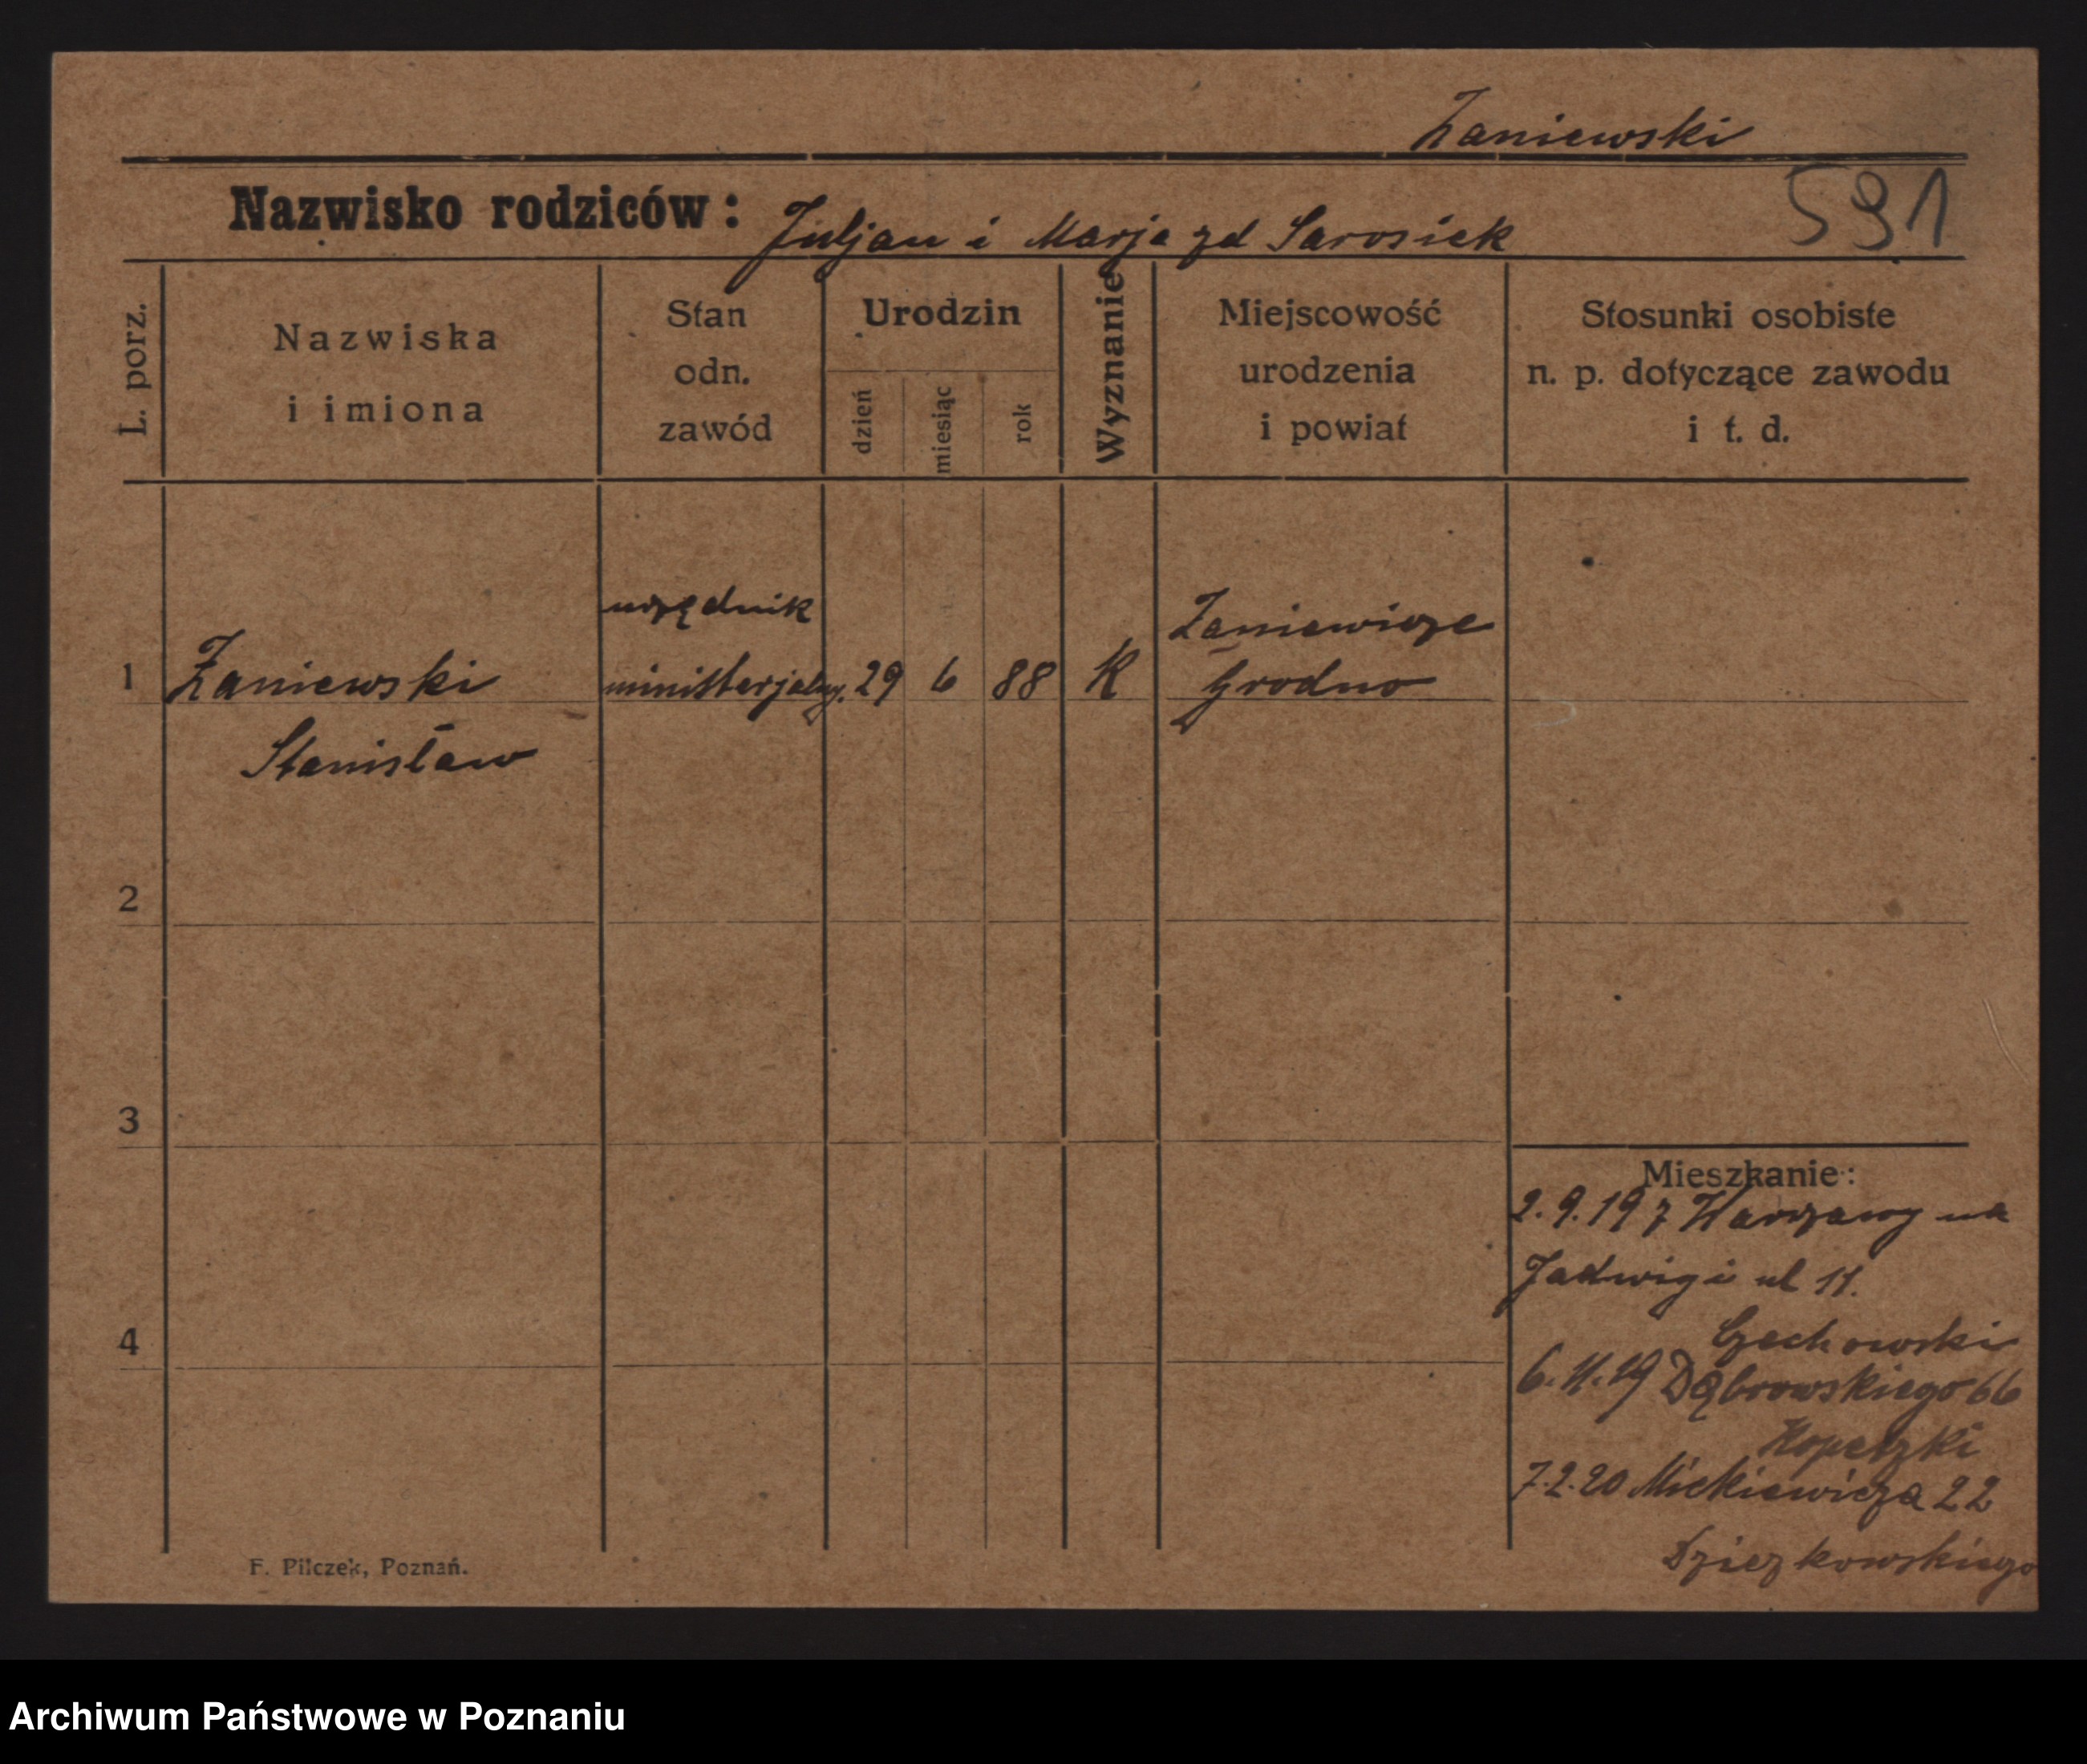 Żaniewski
591
Nazwisko rodziców: Juljan i Marja zd Sarosiek
L. porz.
Nazwiska
i imiona
Stan
odn.
zawód
Urodzin
dzień
miesiąc
rok
Wyznanie
Miejscowość
urodzenia
i powiat
Stosunki osobiste
n. p. dotyczące zawodu
i t. d.
urzędnik
Żaniewicze
1 Żaniewski ministerjalny. 29 6 88 K Grodno
Stanisław
2
3
4
Mieszkanie:
2.9.19 z Warszawy na
Jadwigi ul 11.
Czechowski
6.11.19 Dąbrowskiego 66
Kopetzki
7.2.20 Mickiewicza 22
F. Pilczek, Poznań.
Archiwum Państwowe w Poznaniu